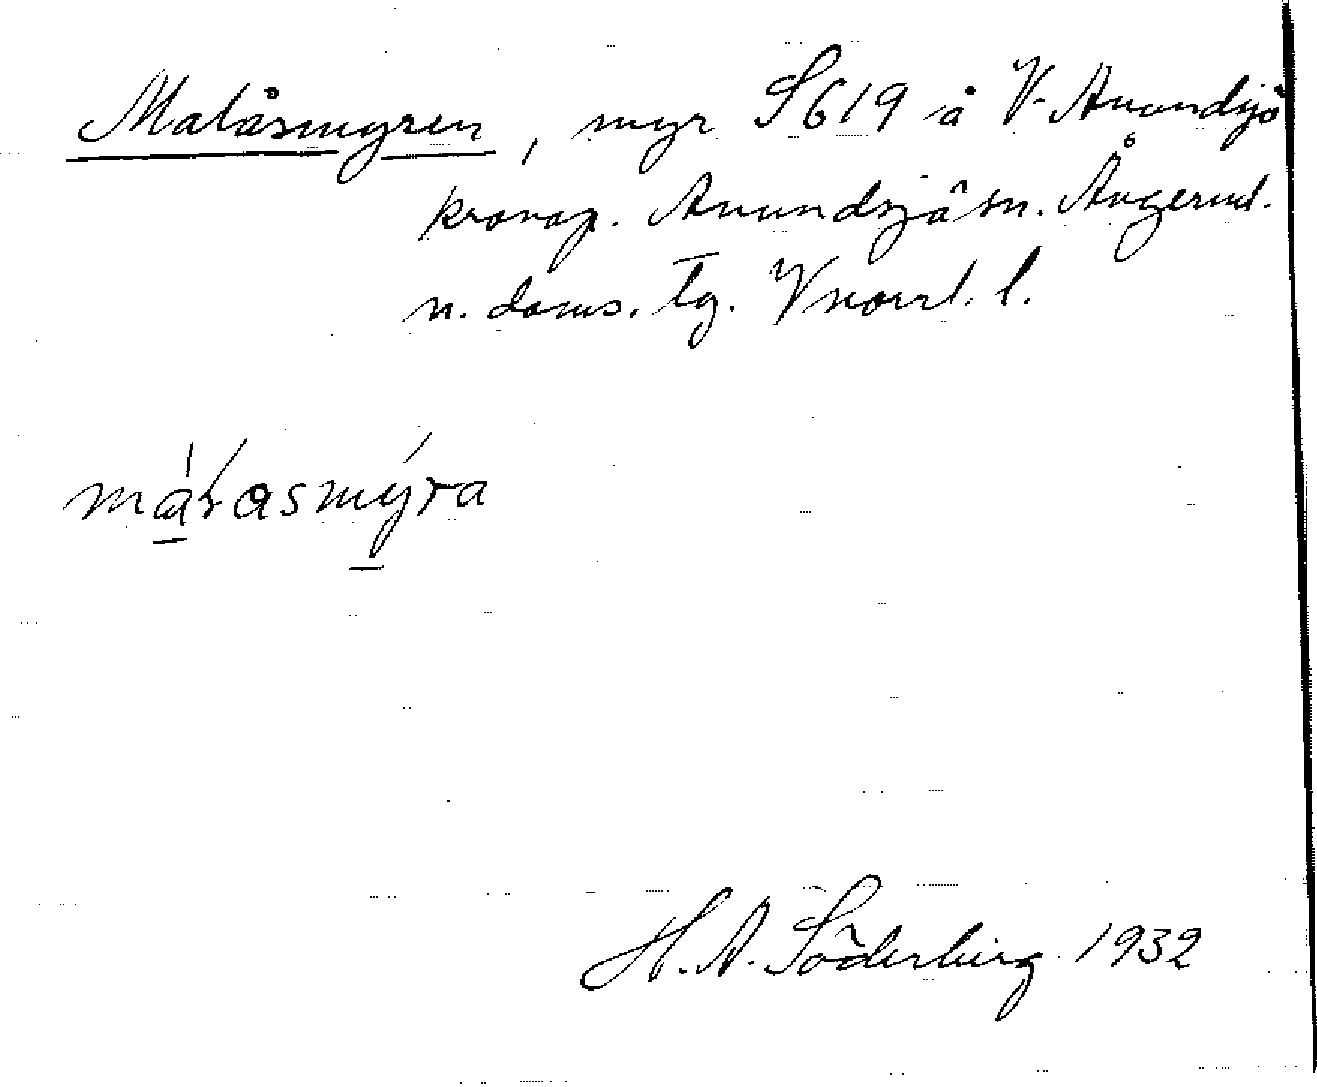 Malåsmyren, myr S619 å V. Anundsjö
kronop. Anundsjö sn. Ångerml.
n. doms. tg. Vnorrl. l.
H. A. Söderberg 1932